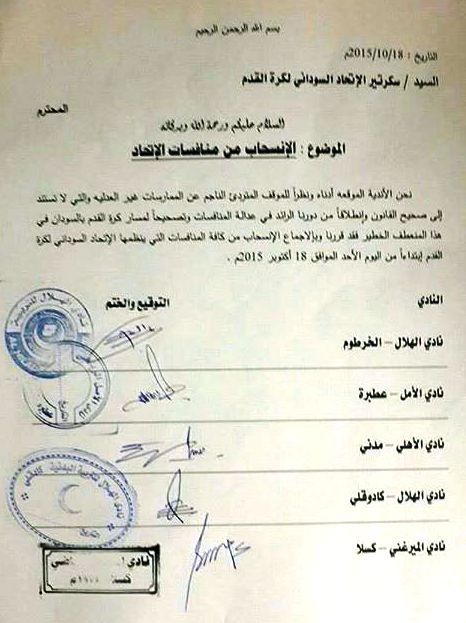 بسم الله الرحمن الرحيم
التاريخ : 2015/10/18م
السيد / سكرتير الإتحاد السوداني لكرة القدم
المحترم
السلام عليكم ورحمة الله وبركاته
الموضوع : الإنسحاب من منافسات الإتحاد
نحن الأندية الموقعه أدناه ونظراً للموقف المتردئ الناجم عن الممارسات غير العدليه والتي لا تستند
إلى صحيح القانون وإنطلاقاً من دورنا الرائد في عدالة المنافسات وتصحيحاً لمسار كرة القدم بالسودان في
هذا المنعطف الخطير فقد قررنا وبالإجماع الإنسحاب من كافة المنافسات التي ينظمها الإتحاد السوداني لكرة
القدم إبتداءاً من اليوم الأحد الموافق 18 أكتوبر 2015م .
النادي
التوقيع والختم
نادي الهلال – الخرطوم
نادي الأمل – عطبرة
نادي الأهلي – مدني
نادي الهلال – كادوقلي
نادي الهلال للتربية البدنية كادوقلي
نادي الميرغني – كسلا
نادي